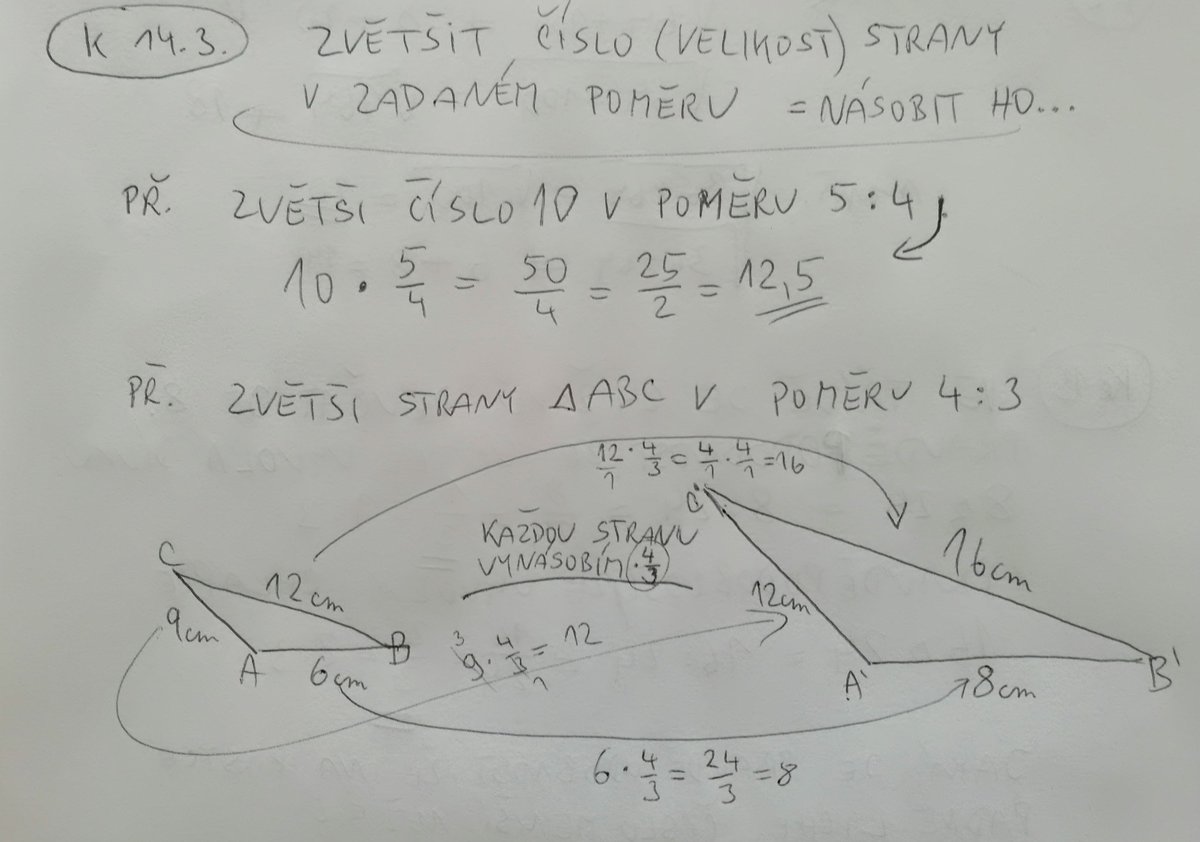 K 14.3.
ZVĚTŠIT ČÍSLO (VELIKOST) STRANY
V ZADANÉM POMĚRU = NÁSOBIT HO...
PŘ. ZVĚTŠI ČÍSLO 10 V POMĚRU 5:4
10 · 5/4 = 50/4 = 25/2 = 12,5
PŘ. ZVĚTŠI STRANY ΔABC V POMĚRU 4:3
12/1 · 4/3 = 4/1 · 4/1 = 16
KAŽDOU STRANU
VYNÁSOBÍM · 4/3
C
12cm
9cm
A
6cm
B
3
9 · 4/3 = 12
1
C'
16cm
12cm
A'
8cm
B'
6 · 4/3 = 24/3 = 8